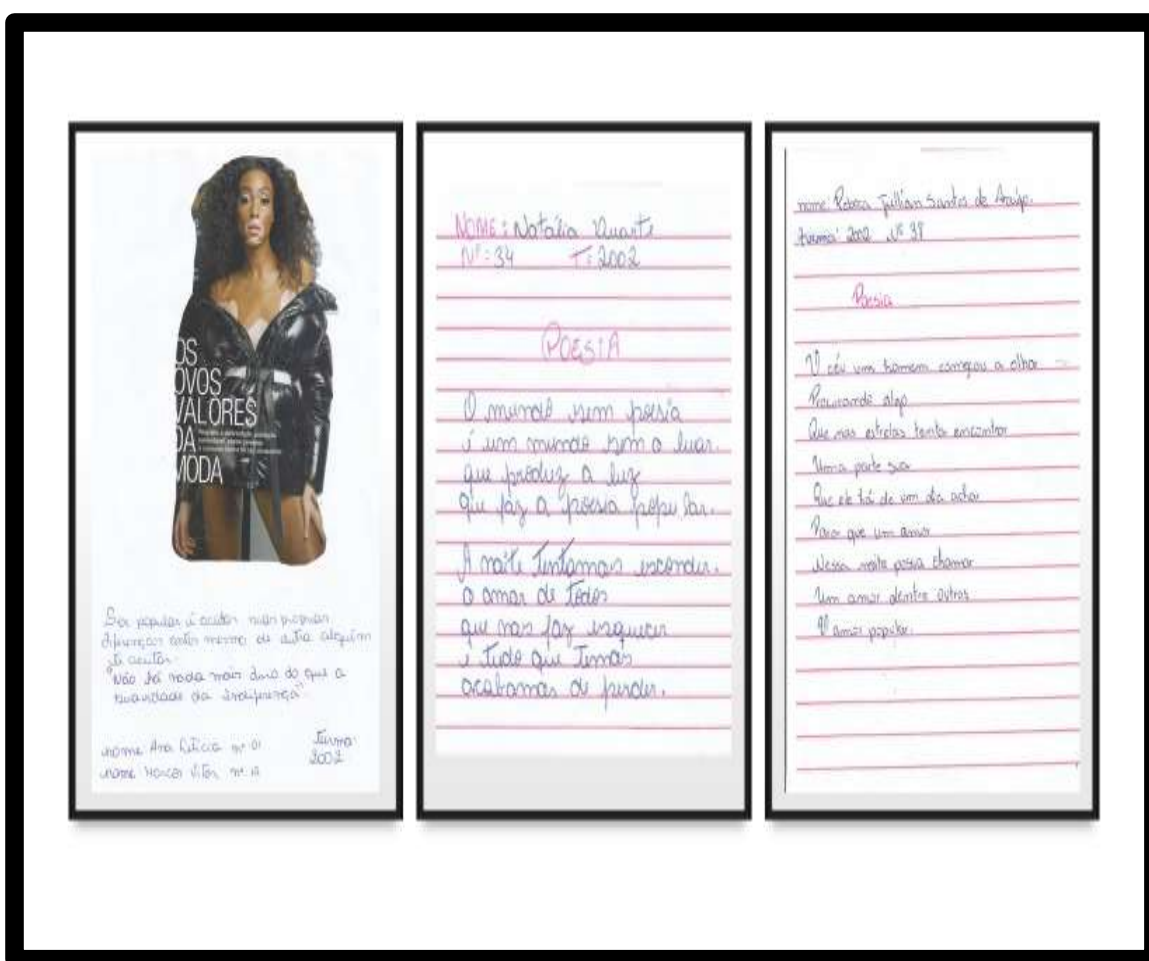 OS
OVOS
VALORES
DA
MODA
Ser popular é aceitar suas próprias
diferenças antes mesmo de outro alguém
te aceitar.
"Não há nada mais duro do que a
suavidade da indiferença"
nome Ana Letícia nº 01
Turma:
2002
nome Marcos Vitor nº
NOME: Natália Duarte
Nº: 34 T: 2002
POESIA
O mundo sem poesia
é um mundo sem o luar.
que produz a luz
que faz a poesia popular.
A noite tentamos esconder.
o amar de todos
que nos faz esquecer
é tudo que temos
acabamos de perder.
nome: Jullian Santos de Araújo.
turma: 2002 Nº 38
Poesia
O céu um homem começou a olhar
Procurando algo
Que nas estrelas tenta encontrar
Uma parte sua
Que ele há de um dia achar
Para que um amor
Nessa noite possa chamar
Um amor dentre outros
O amor popular.